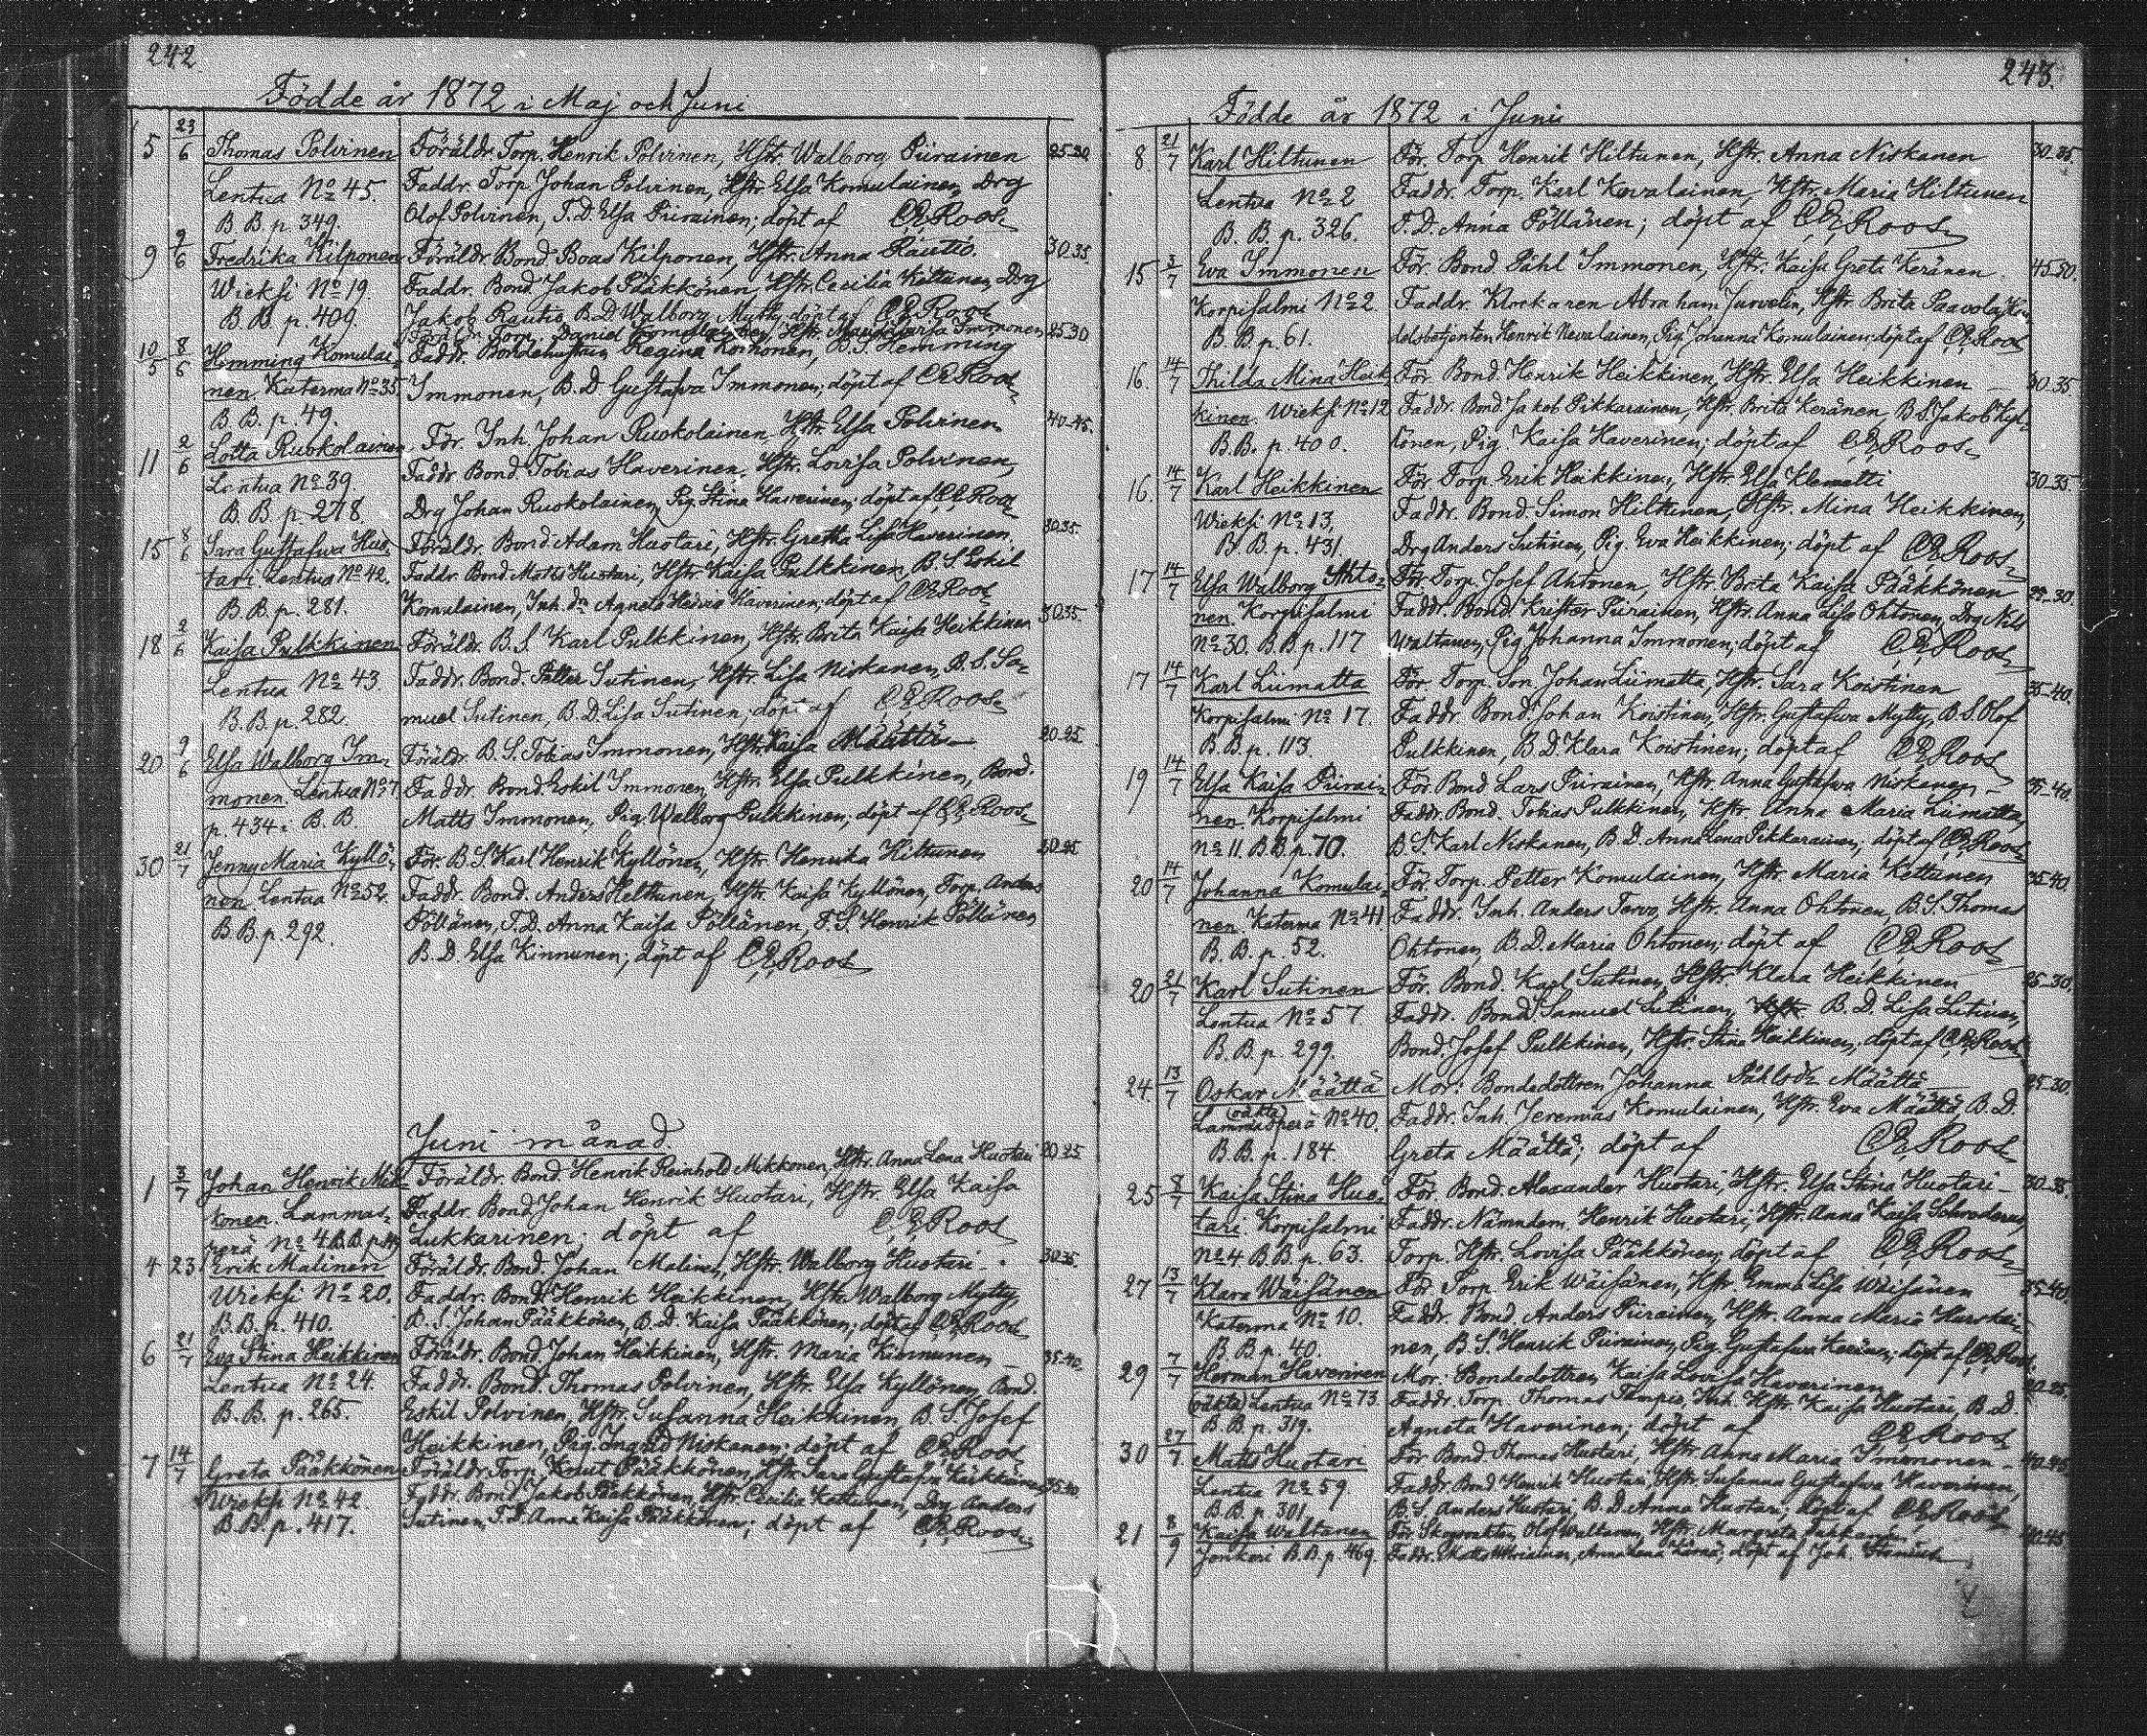 242.
Födde år 1872 i Maj och Juni
5 23/6 Thomas Polvinen Föräldr. Torp. Henrik Polvinen, Hstr. Walborg Piirainen 25-30
Lentua No 45. Faddr. Torp. Johan Polvinen, Hstr. Elsa Komulainen, Drg
B. B. p. 349. Olof Polvinen, T. D. Elsa Piirainen; döpt af C E Roos
9 9/6 Fredrika Kilponen Föräldr. Bond. Boas Kilponen, Hstr. Anna Rautio. 30.35.
Wieksi No 19. Faddr. Bond. Jakob Pääkkönen, Hstr. Cecilia Kettunen, Drg
B. B. p. 409. Jakob Rautio, B. D. Walborg Mytty, döpt af C E Roos
Föräldr. Torp. Daniel Komulainen, Hstr. Immonen 25.30
10/5 8/6 Hemming Komulai- Faddr. Bondehustrun Regina Korhonen, B. S. Hemming
nen. Katerma No 35. Immonen, B. D. Gustafva Immonen; döpt af C E Roos
B. B. p. 49.
11 2/6 Lotta Ruokolainen För. Inh. Johan Ruokolainen Hstr. Elsa Polvinen 40-45.
Lentua No 39. Faddr. Bond. Tobias Haverinen, Hstr. Lovisa Polvinen,
B. B. p. 278. Drg Johan Ruokolainen, Pig. Stina Haverinen; döpt af C E Roos
15 8/6 Sara Gustafva Huo- Föräldr. Bond. Adam Huotari, Hstr. Gretha Lisa Haverinen. 30.35.
tari Lentua No 42. Faddr. Bond. Matts Huotari, Hstr. Kaisa Pulkkinen, B. S. Eskil
B. B. p. 281. Komulainen, Inh. dr Agneta Hedvig Haverinen; döpt af C E Roos
18 2/6 Kaisa Pulkkinen Föräldr. B. S. Karl Pulkkinen, Hstr. Brita Kaisa Heikkinen 30.35.
Lentua No 43. Faddr. Bond. Petter Sutinen, Hstr. Lisa Niskanen, B. S. Sa-
B. B. p. 282. muel Sutinen, B. D. Lisa Sutinen; döpt af C E Roos
20 9/6 Elsa Walborg Im- Föräldr. B. S. Tobias Immonen, Hstr. Kaisa Määttä 20-25
monen. Lentua No 7 Faddr. Bond. Eskil Immonen, Hstr. Elsa Pulkkinen, Bond.
p. 434 i B. B. Matts Immonen, Pig. Walborg Pulkkinen; döpt af C E Roos
30 21/7 Jenny Maria Kyllö- För. B. S. Karl Henrik Kyllönen, Hstr. Henrika Hiltunen 20-25
nen Lentua No 52. Faddr. Bond. Anders Helttunen, Hstr. Kaisa Kyllönen, Torp. Anders
B. B. p. 292. Pöllänen, T. D. Anna Kaisa Pöllänen, T. S. Henrik Pöllänen
B. D. Elsa Kinnunen; döpt af C E Roos
Juni månad.
1 3/7 Johan Henrik Mik- Föräldr. Bond. Henrik Reinhold Mikkonen, Hstr. Anna Lena Huotari 20-25
konen. Lammas- Faddr. Bond Johan Henrik Huotari, Hstr. Elsa Kaisa
perä No 4. B.B. p. Lukkarinen; döpt af C E Roos
4 23 Erik Malinen Föräldr. Bond. Johan Malinen, Hstr. Walborg Huotari. 30-35.
Wieksi No 20. Faddr. Bond. Henrik Heikkinen, Hstr. Walborg Mytty,
B. B. p. 410. B. S. Johan Pääkkönen, B. D. Kaisa Pääkkönen; döpt af C E Roos
6 21/7 Eva Stina Heikkinen Föräldr. Bond. Johan Heikkinen, Hstr. Maria Kinnunen 35-40.
Lentua No 24. Faddr. Bond. Thomas Polvinen, Hstr. Elsa Kyllönen, Bond.
B. B. p. 265. Eskil Polvinen, Hstr. Susanna Heikkinen, B. S. Josef
Heikkinen, Pig. Ingrid Niskanen; döpt af C E Roos
7 14/7 Greta Pääkkönen Föräldr. Torp. Knut Pääkkönen, Hstr. Sara Gustafva 35-40.
Wieksi No 42. Faddr. Bond. Jakob Pääkkönen, Hstr. Cecilia Kettunen, Drg Anders
B. B. p. 417. Sutinen, T. D. Anna Kaisa Pääkkönen; döpt af C E Roos
243.
Födde år 1872 i Juni
8. 21/7 Karl Hiltunen För. Torp. Henrik Hiltunen, Hstr. Anna Niskanen 30-35.
Lentua No 2 Faddr. Torp. Karl Kovalainen, Hstr. Maria Hiltunen
B. B. p. 326. T. D. Anna Pöllänen; döpt af C E Roos
15 3/7 Eva Immonen För. Bond. Påhl Immonen, Hstr. Kaisa Greta Keränen. 45-50.
Korpisalmi No 2. Faddr. Klockaren Abraham Jurvelin, Hstr. Brita Paavola,
B. B. p. 61. delsbetjenten Henrik Nevalainen, Pig. Johanna Komulainen; döpt af C E Roos
16. 14/7 Thilda Mina Heik För. Bond. Henrik Heikkinen, Hstr. Elsa Heikkinen 30-35.
kinen. Wieksi No 12 Faddr. Bond. Jakob Pikkarainen, Hstr. Brita Keränen, B. S. Jakob Kyl-
B. B. p. 400. lönen, Pig. Kaisa Haverinen; döpt af C E Roos
16. 14/7 Karl Heikkinen För. Torp. Erik Heikkinen, Hstr. Elsa Klemetti 30-35.
Wieksi No 13, Faddr. Bond. Simon Hiltunen, Hstr. Mina Heikkinen,
B. B. p. 431. Drg Anders Sutinen, Pig. Eva Heikkinen; döpt af C E Roos
17 14/7 Elsa Walborg Ahto- För. Torp. Josef Ahtonen, Hstr. Brita Kaisa Pääkkönen 25-30.
nen. Korpisalmi Faddr. Bond. Krister Piirainen, Hstr. Anna Lisa Ohtonen, Drg Nils
No 30. B. B. p. 117 Waltanen, Pig. Johanna Immonen; döpt af C E Roos
17 14/7 Karl Liimatta För. Torp. Son Johan Liimatta, Hstr. Sara Koistinen 35-40.
Korpisalmi No 17. Faddr. Bond. Johan Koistinen, Hstr. Gustafva Mytty, B. S. Olof
B. B. p. 113. Pulkkinen, B. D. Klara Koistinen; döpt af C E Roos
19 14/7 Elsa Kaisa Piirai- För. Bond Lars Piirainen, Hstr. Anna Gustafva Niskanen 35-40.
nen. Korpisalmi Faddr. Bond. Tobias Pulkkinen, Hstr. Anna Maria Liimatta,
No 11. B. B. p. 70. B. S. Karl Niskanen, B. D. Anna Lena Pikkarainen; döpt af C E Roos
20 14/7 Johanna Komulai För. Torp. Petter Komulainen, Hstr. Maria Kettunen 35-40.
nen. Katerma No 41. Faddr. Inh. Anders Tervo, Hstr. Anna Ohtonen, B. S. Thomas
B. B. p. 52. Ohtonen, B. D. Maria Ohtonen; döpt af C E Roos
20 21/7 Karl Sutinen För. Bond. Karl Sutinen, Hstr. Klara Heikkinen 25-30.
Lentua No 57. Faddr. Bond. Samuel Sutinen, Hstr. B. D. Lisa Sutinen,
B. B. p. 299. Bond. Josef Pulkkinen, Hstr. Stina Heikkinen; döpt af C E Roos
24. 13/7 Oskar Määttä Mor: Bondedottren Johanna Påhlsdr Määttä 25-30.
(oäkta) Lammasperä No 40. Faddr. Inh. Jeremias Komulainen, Hstr. Eva Määttä, B. D.
B. B. p. 184. Greta Määttä; döpt af C E Roos
25 8/7 Kaisa Stina Huo- För. Bond. Alexander Huotari, Hstr. Elsa Stina Huotari 30-35.
tari. Korpisalmi Faddr. Nämndem. Henrik Huotari, Hstr. Anna Kaisa Schroderus,
No 4 B. B. p. 63. Torp. Hstr. Lovisa Pääkkönen; döpt af C E Roos
27 13/7 Klara Wäisänen För. Torp. Erik Wäisänen, Hstr. Emma Lisa Wäisänen 35-40.
Katerma No 10. Faddr. Bond. Anders Piirainen, Hstr. Anna Maria Hurskai-
B. B. p. 40. nen, B. S. Henrik Piirainen, Pig. Gustafva Keränen; döpt af C E Roos.
29 7/7 Herman Haverinen Mor: Bondedottren Kaisa Lovisa Haverinen 20-25.
(oäkta) Lentua No 73 Faddr. Torp. Thomas Inh. Hstr. Kaisa Huotari, B. D.
B. B. p. 319. Agneta Haverinen; döpt af C E Roos
30 27/7 Matts Huotari För. Bond. Thomas Huotari, Hstr. Anna Maria Immonen 40-45.
Lentua No 59. Faddr. Bond. Henrik Huotari, Hstr. Susanna Gustafva Haverinen,
B. B. p. 301. B. S. Anders Huotari, B. D. Anna Huotari; döpt af C E Roos
21 8/9 Kaisa Waltanen För. Skogvakten Olof Waltanen, Hstr. Margreta 40-45
Jonkeri B. B. p. 469. Faddr. Matts Anna Lena döpt af Joh.